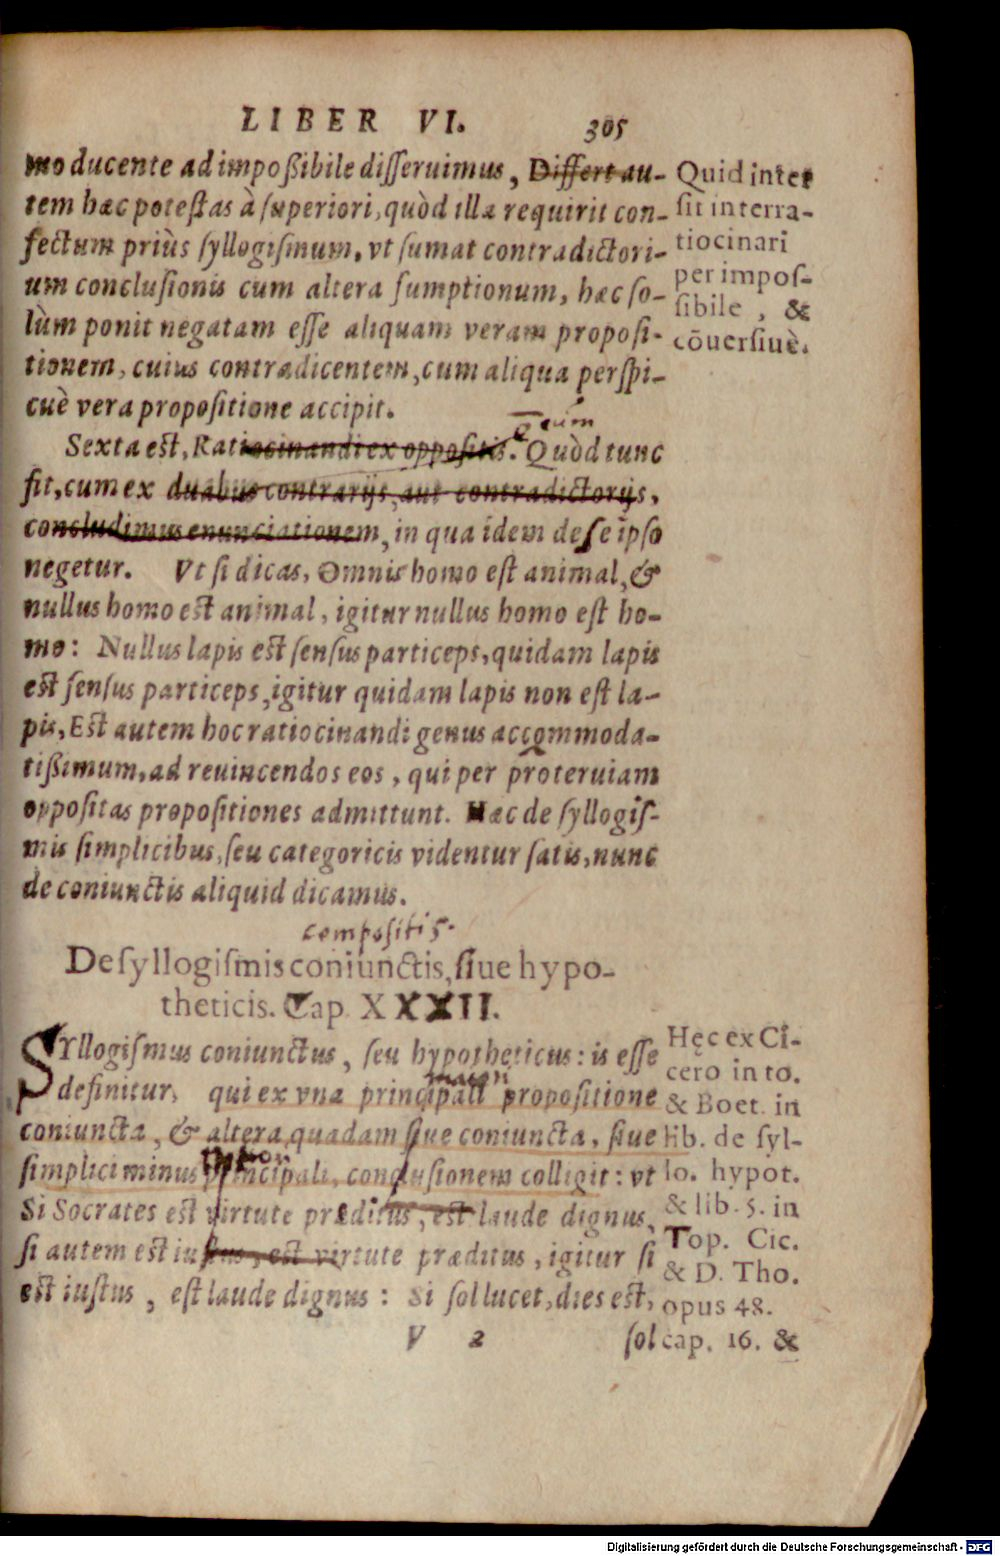 LIBER VI. 305
mo ducente ad impoßibile disseruimus, Differt au-
tem hæc potestas à superiori, quòd illa requirit con-
fectum priùs syllogismum, vt sumat contradictori-
um conclusionis cum altera sumptionum, hæc so-
lùm ponit negatam esse aliquam veram proposi-
tionem, cuius contradicentem, cum aliqua perspi-
cuè vera propositione accipit.
Quid inter
sit inter ra-
tiocinari
per impos-
sibile, &
cōuersiuè.
Sexta est, Ratiocinandi ex oppositis. Quòd tunc
fit, cum ex duabus contrarijs, aut contradictorijs,
concludimus enunciationem, in qua idem de se ipso
negetur. Vt si dicas, Omnis homo est animal, &
nullus homo est animal, igitur nullus homo est ho-
mo: Nullus lapis est sensus particeps, quidam lapis
est sensus particeps, igitur quidam lapis non est la-
pis, Est autem hoc ratiocinandi genus accommoda-
tißimum, ad reuincendos eos, qui per proteruiam
oppositas propositiones admittunt. Hæc de syllogis-
mis simplicibus, seu categoricis videntur satis, nunc
de coniunctis aliquid dicamus.
compositis.
De syllogismis coniunctis, siue hypo-
theticis. Cap. XXXII.
SYllogismus coniunctus, seu hypotheticus: is esse
definitur, qui ex vna principali propositione
coniuncta, & altera quadam siue coniuncta, siue
simplici minus principali, conclusionem colligit: vt
Si Socrates est virtute præditus, est laude dignus,
si autem est iustus, est virtute præditus, igitur si
est iustus, est laude dignus: Si sol lucet, dies est,
Hęc ex Ci-
cero in to.
& Boet. in
lib. de syl-
lo. hypot.
& lib. 5. in
Top. Cic.
& D. Tho.
opus 48.
cap. 16. &
V 2 sol
Digitalisierung gefördert durch die Deutsche Forschungsgemeinschaft - DFG